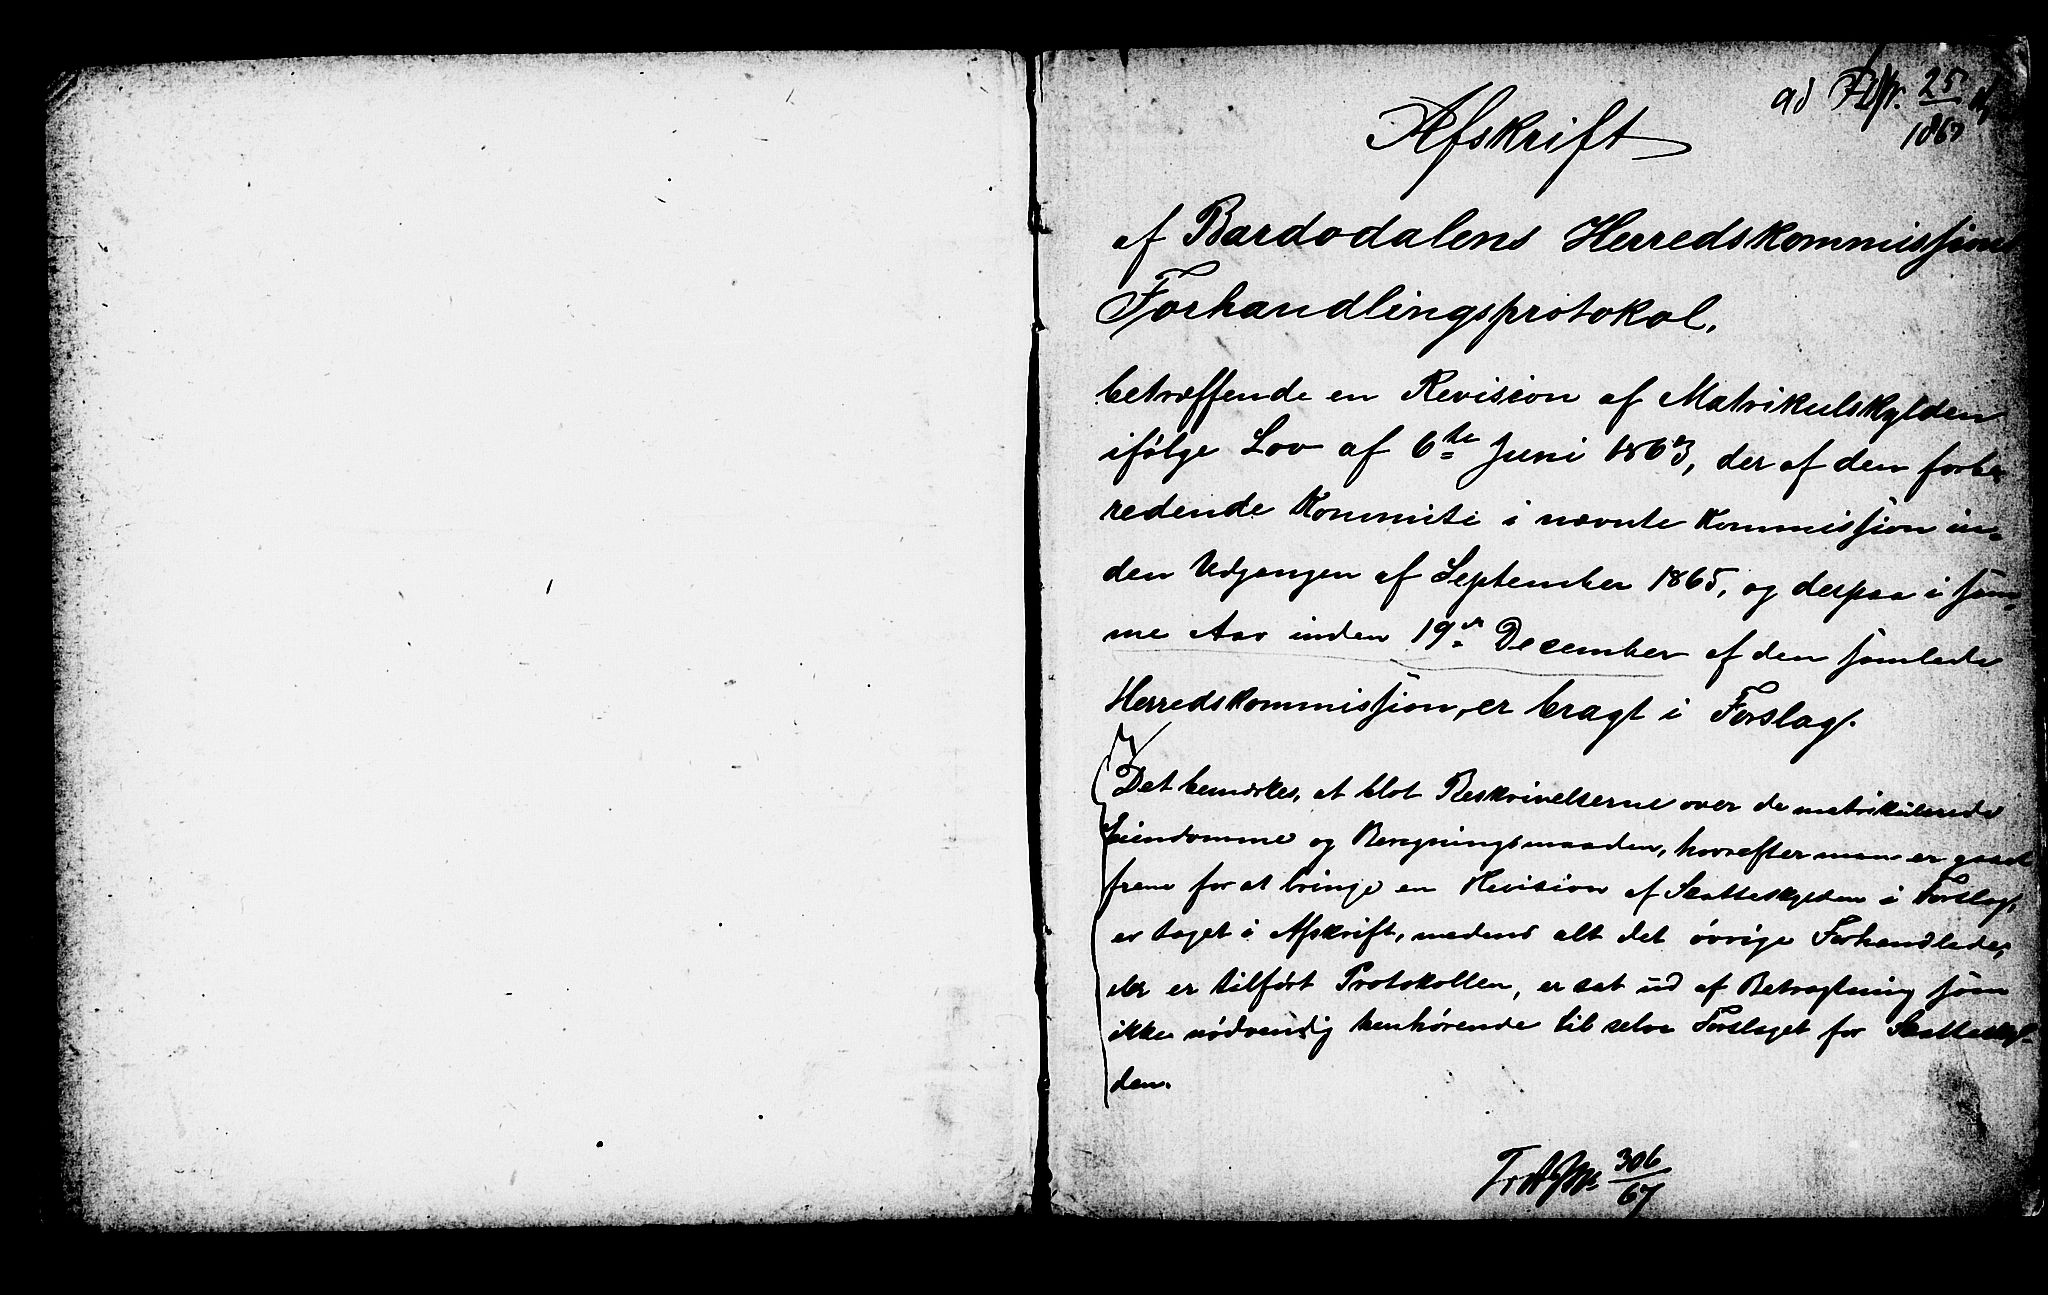 ad 25
1867
Afskrift
af Bardodalens Herredskommissjons
Forhandlingsprotokol,
betræffende en Revision af Matrikulskylden
ifölge Lov af 6te Juni 1863, der af den forbe-
redende Kommite i nævnte Kommissjon in-
den Udgangen af September 1865, og derpaa i sam-
me Aar inden 19de December af den samlede
Herredskommissjon, er bragt i Forslag.
Det bemærkes, at blot Beskrivelserne over de matrikulerede
Eiendomme og Beregningsmaaden, hvorefter man er gaaet
frem for at bringe en Revision af Skatteskylden i Forslag,
er taget i Afskrift, medens alt det övrige Forhandlede,
der er tilfört Protokollen, er sat ud af Betragtning som
ikke nödvendig henhörende til selve Forslaget for Skatteskyl-
den.
306
67